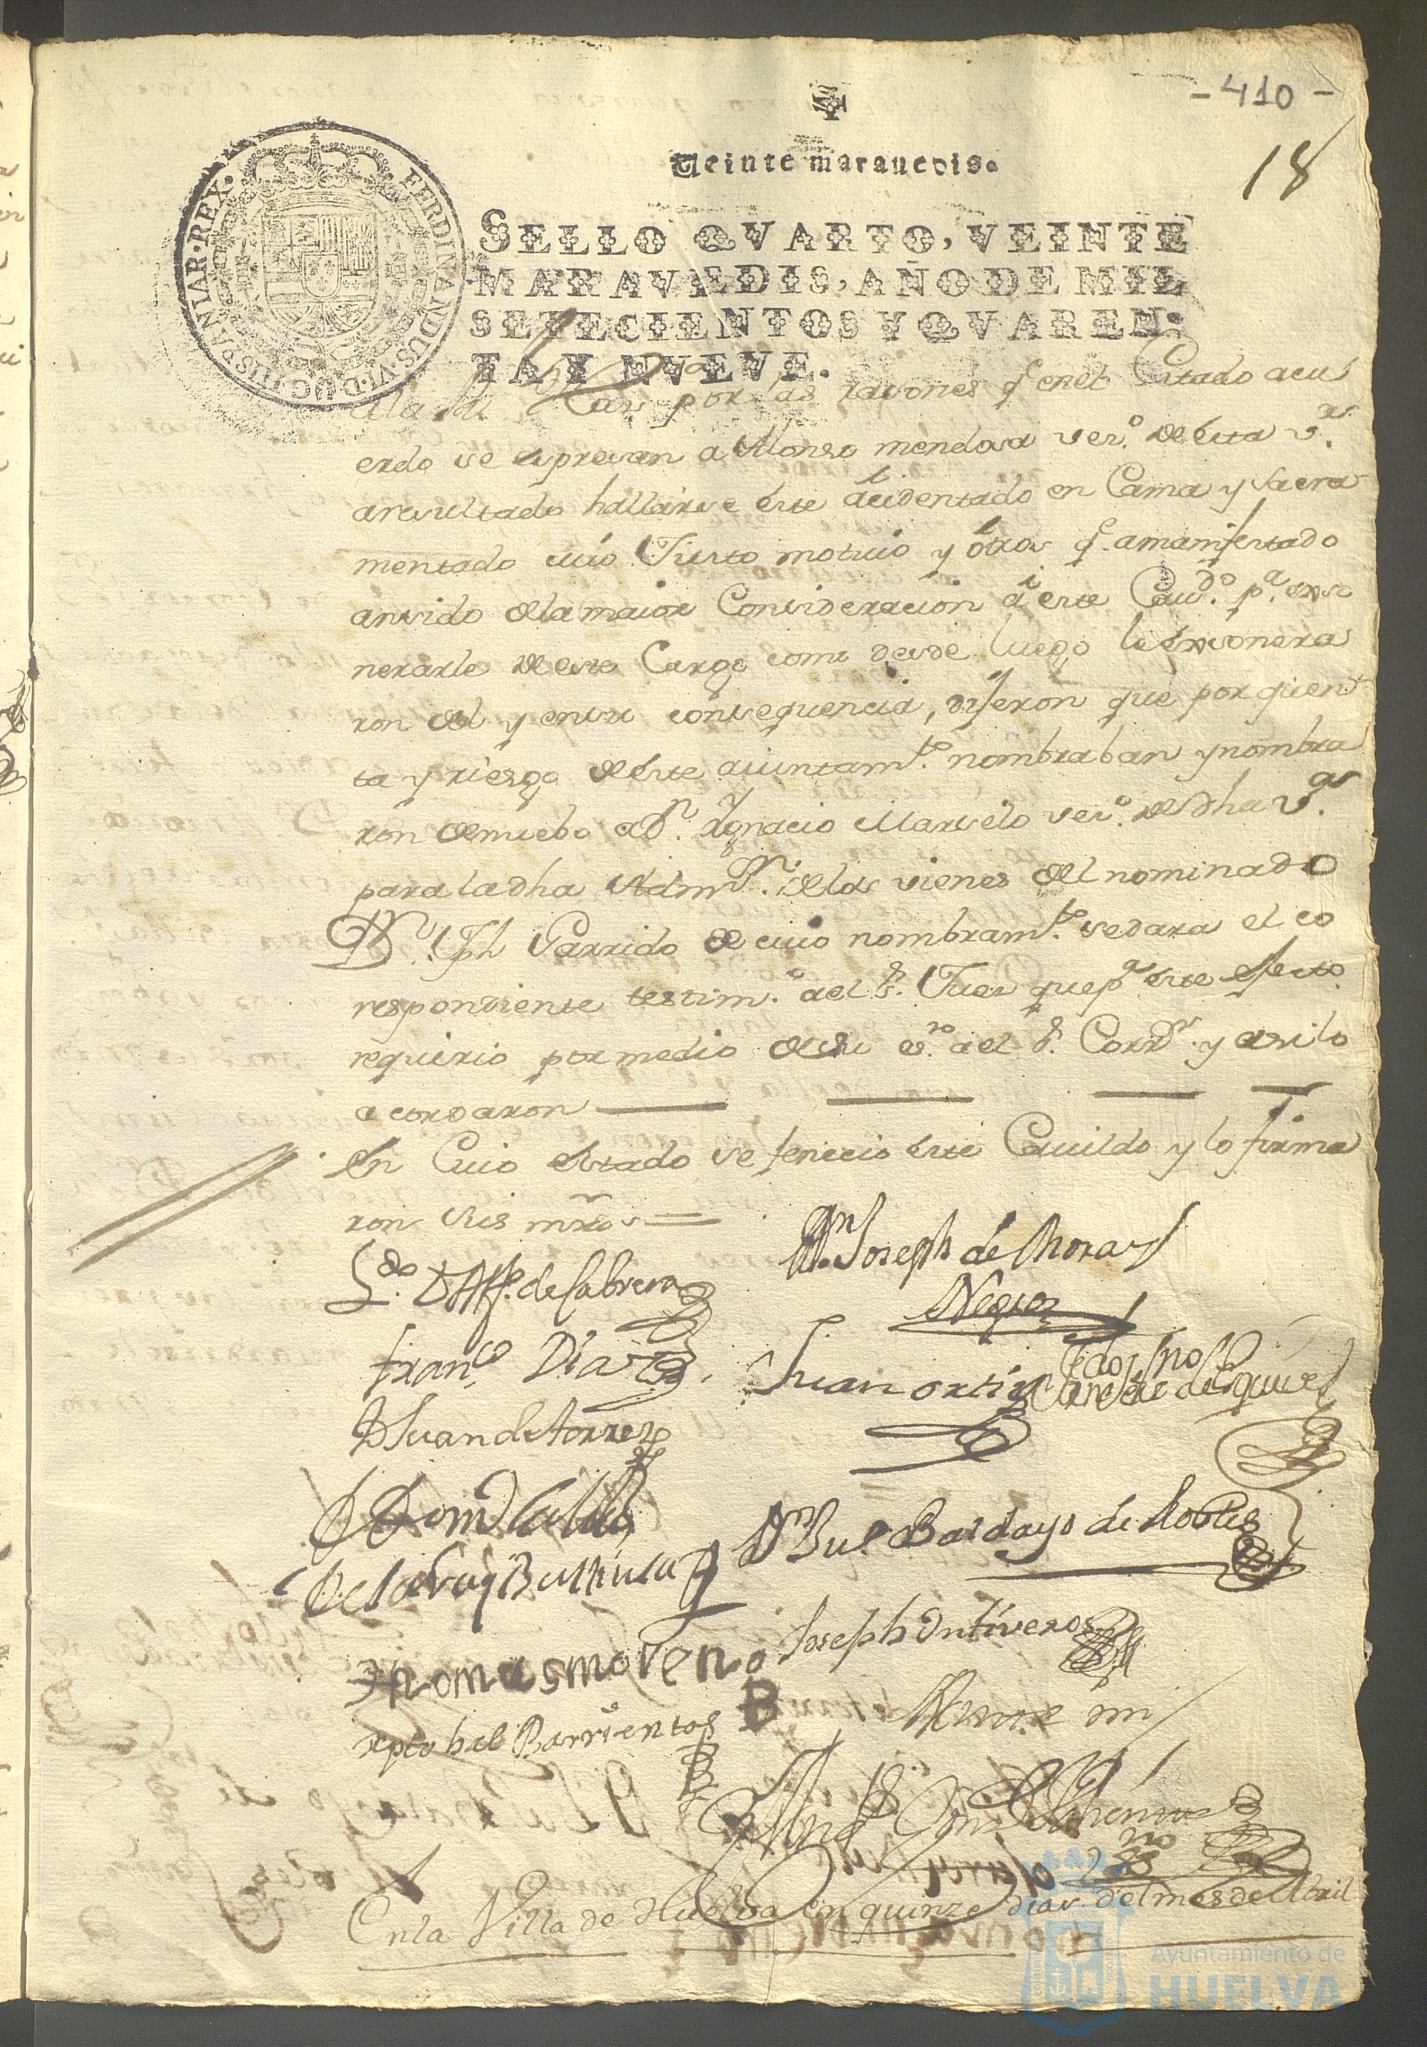 - 410 -
18
Veinte marauedis.
SELLO QVARTO, VEINTE
MARAVEDIS, AÑO DE MIL
SETECIENTOS Y QVAREN-
TA Y NVEVE.
FERDINANDUS·VI·D·G·HISPANIAR·REX·
por las rasones q̃ en el Citado acu
erdo se expresan a Alonso mendosa vez.º de esta v.ª
a resultado hallarse éste acidentado en Cama y sacra
mentado cuio Justo motiuo y ótros q̃. a manifestado
an sido de la maior Consideracion á este Cau.do p.ª exso
nerarle de este Cargo como desde luego le éxsonera
ron del y en su consequencia, dijeron que por quen
ta y riesgo de éste aiuntam.to nombraban y nombra
ron de nuebo a D.n Ygnacio Marselo vez.º de dha v.ª
para la dha Adm.on de los vienes del nominado
D.n Jph Garrido de cuio nombram.to se dara el co
respondiente testim.º a el S.r Juez que p.ª éste efecto
requirio por medio de su es.no a el S.r Corr.or y asi lo
acordaron
En Cuio estado se fenecio éste Cauildo y lo firma
ron sus mrds
L.do D Alf.o de Cabrera
D.n Joseph de Mora y
Negro
Fran.co Diaz
Juan ortiz
D Juan de torres
D.n Jul. Bardayo de Robles
Joseph Ontiveros
Thomas moreno
xptobal Barrientos
Ante mi
es.no
En la Villa de Huelba en quinze dias del mes de Abril
Ayuntamiento de
HUELVA